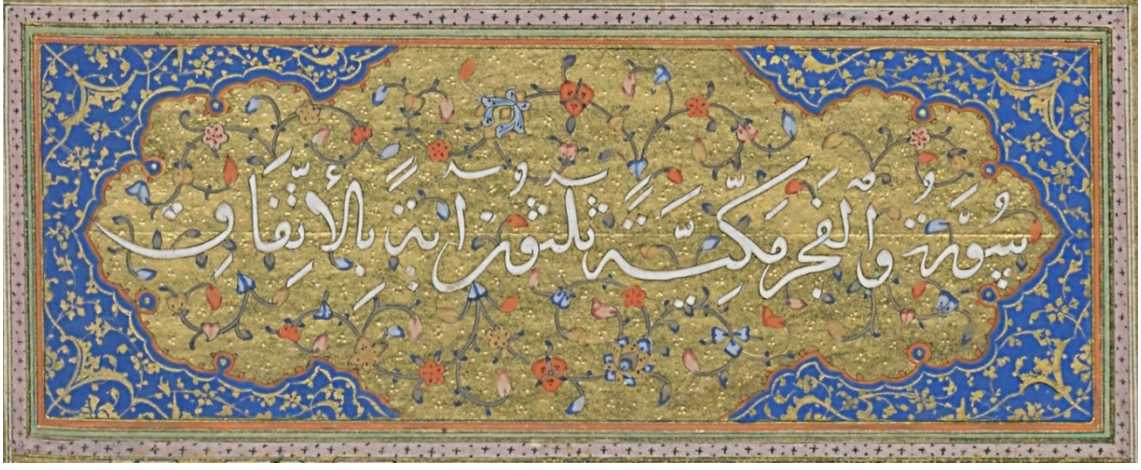 سورة والفجر مكية ثلثون اية بالاتفاق